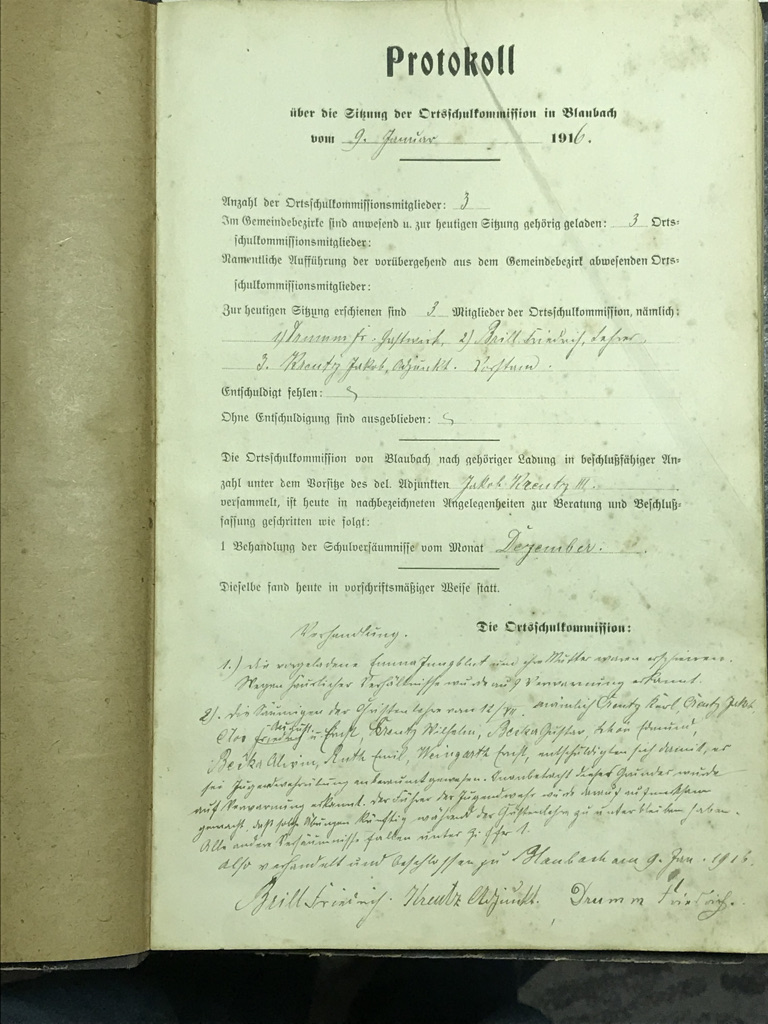 Protokoll
über die Sitzung der Ortsschulkommission in Blaubach
vom 9. Januar 1916.
Anzahl der Ortsschulkommissionsmitglieder: 3
Im Gemeindebezirke sind anwesend u. zur heutigen Sitzung gehörig geladen: 3 Orts-
schulkommissionsmitglieder:
Namentliche Aufführung der vorübergehend aus dem Gemeindebezirk abwesenden Orts-
schulkommissionsmitglieder:
Zur heutigen Sitzung erschienen sind 3 Mitglieder der Ortsschulkommission, nämlich:
1) Drumm Fr. Gastwirt, 2) Brill Friedrich, Lehrer,
3. Kreutz Jakob, Adjunkt. Vorstand.
Entschuldigt fehlen:
Ohne Entschuldigung sind ausgeblieben:
Die Ortsschulkommission von Blaubach nach gehöriger Ladung in beschlußfähiger An-
zahl unter dem Vorsitze des del. Adjunkten Jakob Kreutz III.
versammelt, ist heute in nachbezeichneten Angelegenheiten zur Beratung und Beschluß-
fassung geschritten wie folgt:
1 Behandlung der Schulversäumnisse vom Monat Dezember.
Dieselbe fand heute in vorschriftsmäßiger Weise statt.
Die Ortsschulkommission:
Verhandlung.
1.) die vorgeladene Emma Jungblut und ihre Mutter waren erschienen.
Wegen häuslicher Verhältnisse wurde auf Verwarnung erkannt.
2). Die Säumigen der Christenlehre vom 12/XII. nämlich Kreutz Karl, Kreutz Jakob
Clos Friedrich u. Ernst, Kreutz Wilhelm, Becka Gustav, Edmund,
August
Becka Alwin, Ruth Emil, Weingarth Ernst, entschuldigten sich damit, es
sei Jugendwehrübung anberaumt gewesen. Inanbetracht dieses Grundes wurde
auf Verwarnung erkannt. Der Führer der Jugendwehr wurde darauf aufmerksam
gemacht, daß solche Übungen künftig während der Christenlehre zu unterbleiben haben.
Alle andere Versäumnisse fallen unter Ziffer 1.
Also verhandelt und beschlossen zu Blaubach am 9. Jan. 1916.
Brill Friedrich. Kreutz Adjunkt. Drumm Friedrich.